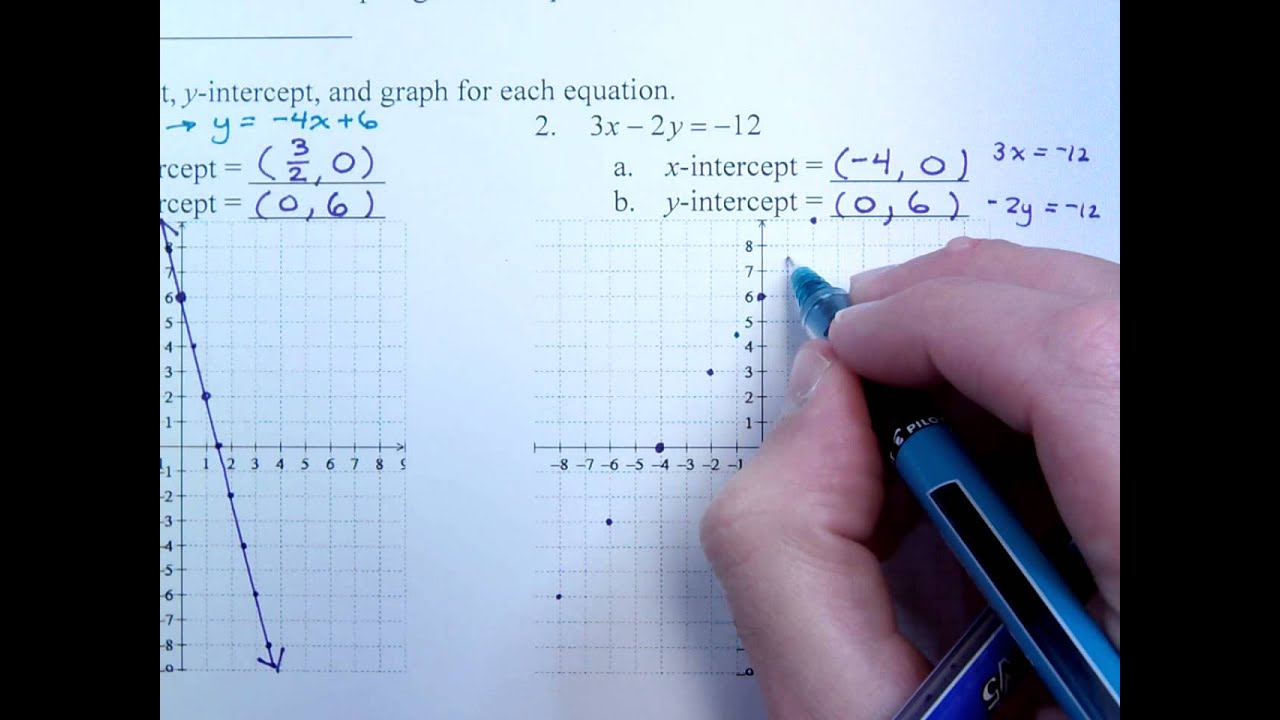 t, y-intercept, and graph for each equation.
→ y = -4x+6
rcept = (3/2, 0)
rcept = (0, 6)
2. 3x – 2y = –12
a. x-intercept = (-4, 0) 3x = -12
b. y-intercept = (0, 6) -2y = -12
8
7
6
5
4
3
2
1
1 2 3 4 5 6 7 8 9
-1
-2
-3
-4
-5
-6
-7
-8
-9
8
7
6
5
4
3
2
1
–8 –7 –6 –5 –4 –3 –2 –1
PILO
V5